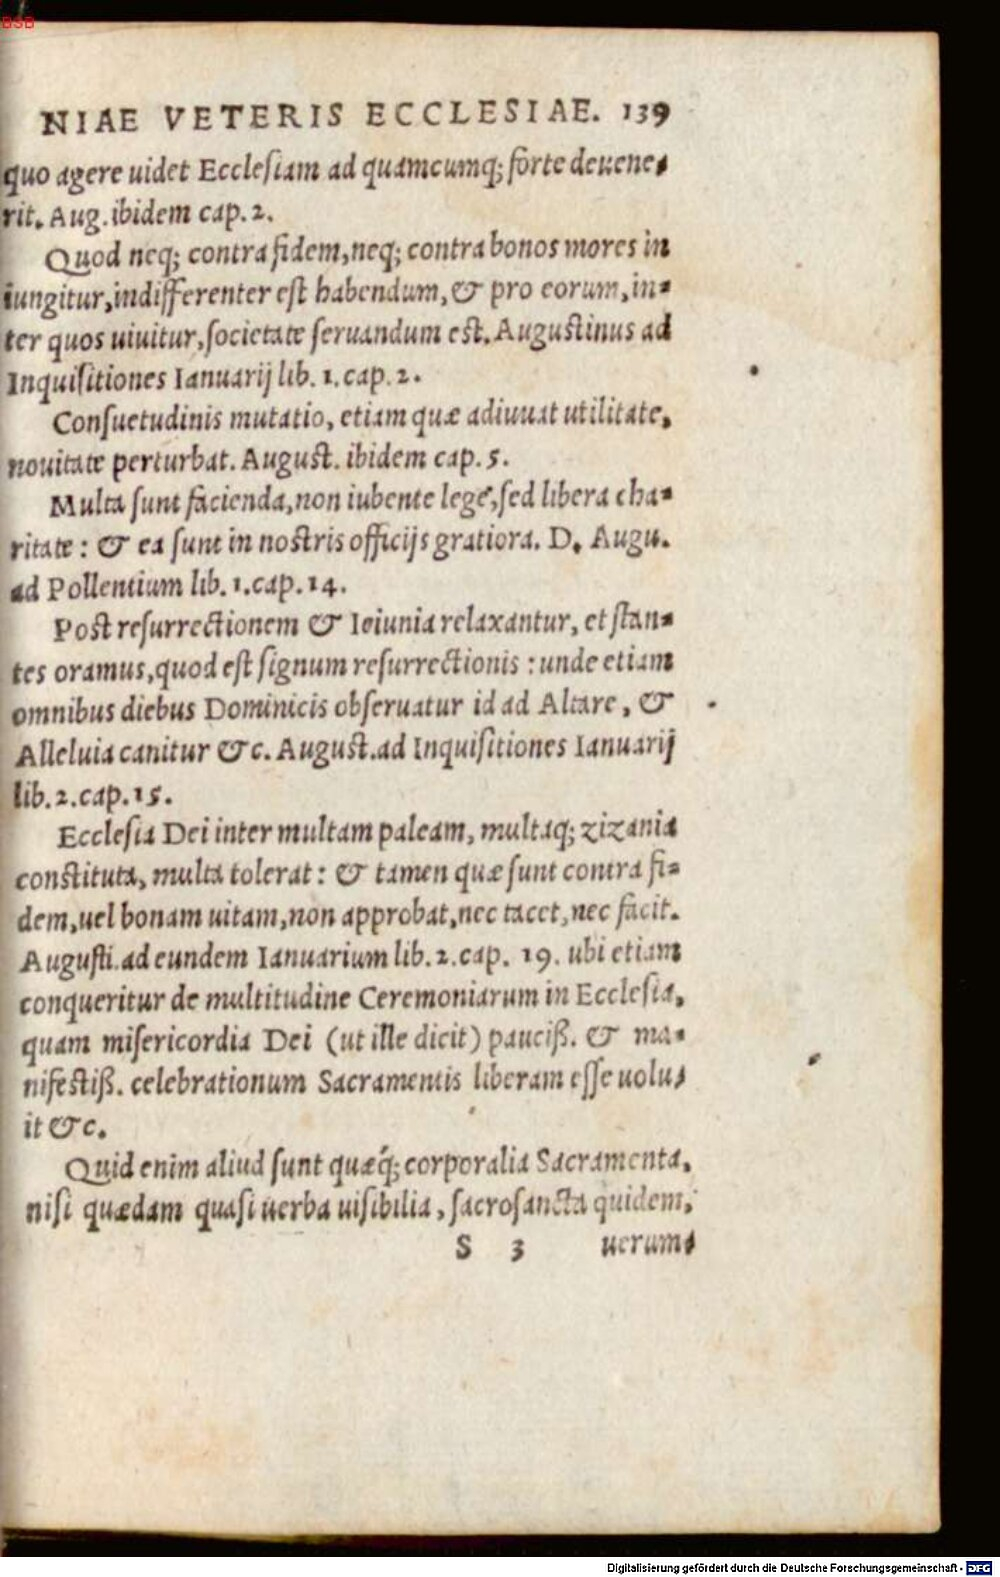 BSB
NIAE VETERIS ECCLESIAE. 139
quo agere uidet Ecclesiam ad quamcumq; forte deuene-
rit. Aug. ibidem cap. 2.
Quod neq; contra fidem, neq; contra bonos mores in
iungitur, indifferenter est habendum, & pro eorum, in-
ter quos uiuitur, societate seruandum est. Augustinus ad
Inquisitiones Ianuarij lib. 1. cap. 2.
Consuetudinis mutatio, etiam quæ adiuuat utilitate,
nouitate perturbat. August. ibidem cap. 5.
Multa sunt facienda, non iubente lege, sed libera cha-
ritate: & ea sunt in nostris officijs gratiora. D. Augu.
ad Pollentium lib. 1. cap. 14.
Post resurrectionem & Ieiunia relaxantur, et stan-
tes oramus, quod est signum resurrectionis: unde etiam
omnibus diebus Dominicis obseruatur id ad Altare, &
Alleluia canitur &c. August. ad Inquisitiones Ianuarij
lib. 2. cap. 15.
Ecclesia Dei inter multam paleam, multaq; zizania
constituta, multa tolerat: & tamen quæ sunt contra fi-
dem, uel bonam uitam, non approbat, nec tacet, nec facit.
Augusti. ad eundem Ianuarium lib. 2. cap. 19. ubi etiam
conqueritur de multitudine Ceremoniarum in Ecclesia,
quam misericordia Dei (ut ille dicit) pauciß. & ma-
nifestiß. celebrationum Sacramentis liberam esse uolu-
it &c.
Quid enim aliud sunt quæq́; corporalia Sacramenta,
nisi quædam quasi uerba uisibilia, sacrosancta quidem,
S 3 uerum-
Digitalisierung gefördert durch die Deutsche Forschungsgemeinschaft - DFG